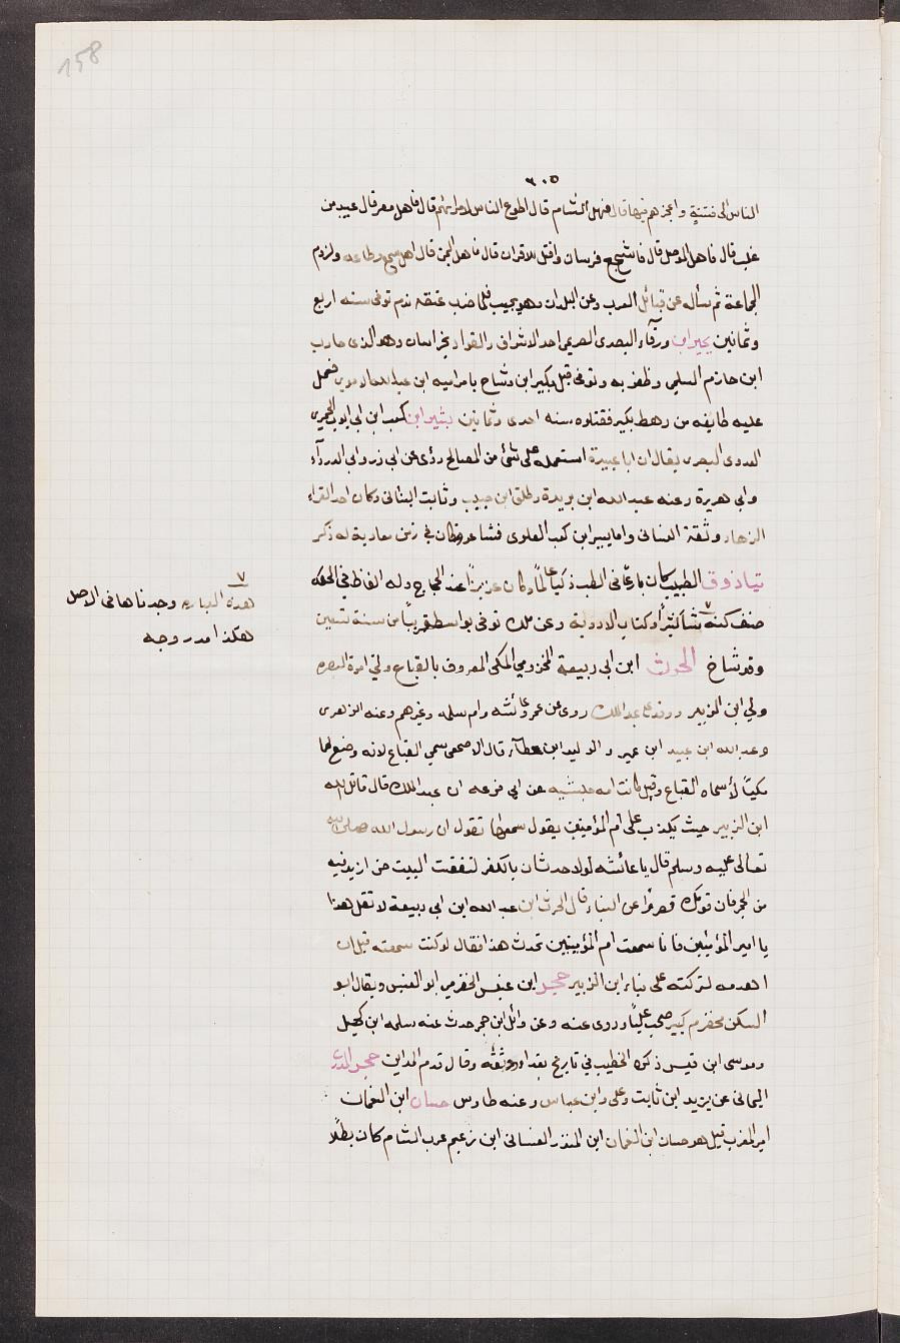 158
٣٠٥
الناس الى فتنة واعجزهم فيها قال فاهل الشام قال اطوع الناس لامرائهم قال فاهل مصر قال عبيد من
غلب قال فاهل الموصل قال فاشجع فرسان واقتل للاقران قال فاهل اليمن قال اهل سمع وطاعه ولزوم
الجماعة ثم سأله عن قبائل العرب وعن البلدان وهو يجيب فلما ضرب عنقه ندم توفى سنه اربع
وثمانين بحير ابن ورقآء البصرى الصريمى احد الاشراف والقواد بخراسان وهو الذى حارب
ابن حازم السلمي وظفر به وتوفى قبل بكير ابن وشاح بامر اميه ابن عبد الله فحمل
عليه طايفه من رهط بكير فقتلوه سنه احدى وثمانين بشير ابن كعب ابن ابى ايوب الحميرى
العدوى البصرى يقال ان ابا عبيدة استعمله على شئ من المصالح روى عن ابى ذر وابى الدردآء
وابى هريرة وعنه عبد الله ابن بريدة وطلق ابن حبيب وثابت البنانى وكان احد القراء
الزهاد وثقة النسائى واما بشير ابن كعب العلوى فشاعر وكان في زمن معاوية له ذكر
تياذوق الطبيب كان بارعًا فى الطب ذكيًا عالمًا وكان عزيزًا عند الحجاج وله الفاظ فى الحكمه
صنف كنشا كثيرًا وكتاب الادوية وعن ملك توفى بواسط قريبًا من سنة تسعين
وقد شاخ الحرث ابن ابى ربيعة المخزومي المكى المعروف بالقباع ولي امرة البصرة
ولي ابن الزبير ووفد على عبد الملك روى عن عمر وعائشه وام سلمه وغيرهم وعنه الزهرى
وعبد الله ابن عبيد ابن عمير والوليد ابن عطآء قال الاصمعى سمى القباع لانه وضع لهما
مكيًا لأسماه القباع وقيل كانت امه حبشيه عن ابى قزعه ان عبد الملك قال قاتل الله
ابن الزبير حيث يكذب على ام المؤمنين يقول سمعتها تقول ان رسول الله صلى الله
تعالى عليه وسلم قال يا عائشه لولا حدثان بالكفر لنقضت البيت حتى ازيد فيه
من الحجر فان قومك قصروا عن البناء قال الحرث ابن عبد الله ابن ابى ربيعة لا تقل هذا
يا امير المؤمنين فانا سمعت ام المؤمنين تحدث هذا فقال لو كنت سمعته قبل ان
اهدمه لتركته على بناء ابن الزبير حجر ابن عنبس الحضرمى ابو العنبس ويقال ابو
السكن مخضرم كبير صحب عليًا وروى عنه وعن وائل ابن حجر حدث عنه سلمه ابن كهيل
وموسى ابن قيس ذكره الخطيب في تاريخ بغداد ووثقه وقال قدم المداين حجر المدرى
اليمانى عن يزيد ابن ثابت وعلى وابن عباس وعنه طاوس حسان ابن النعمان
امير المغرب قيل هو حسان ابن النعمان ابن المنذر الغسانى ابن زعيم عرب الشام كان بطلًا
٧
هذه العباره وجدناها فى الاصل
هكذا من دون وجه